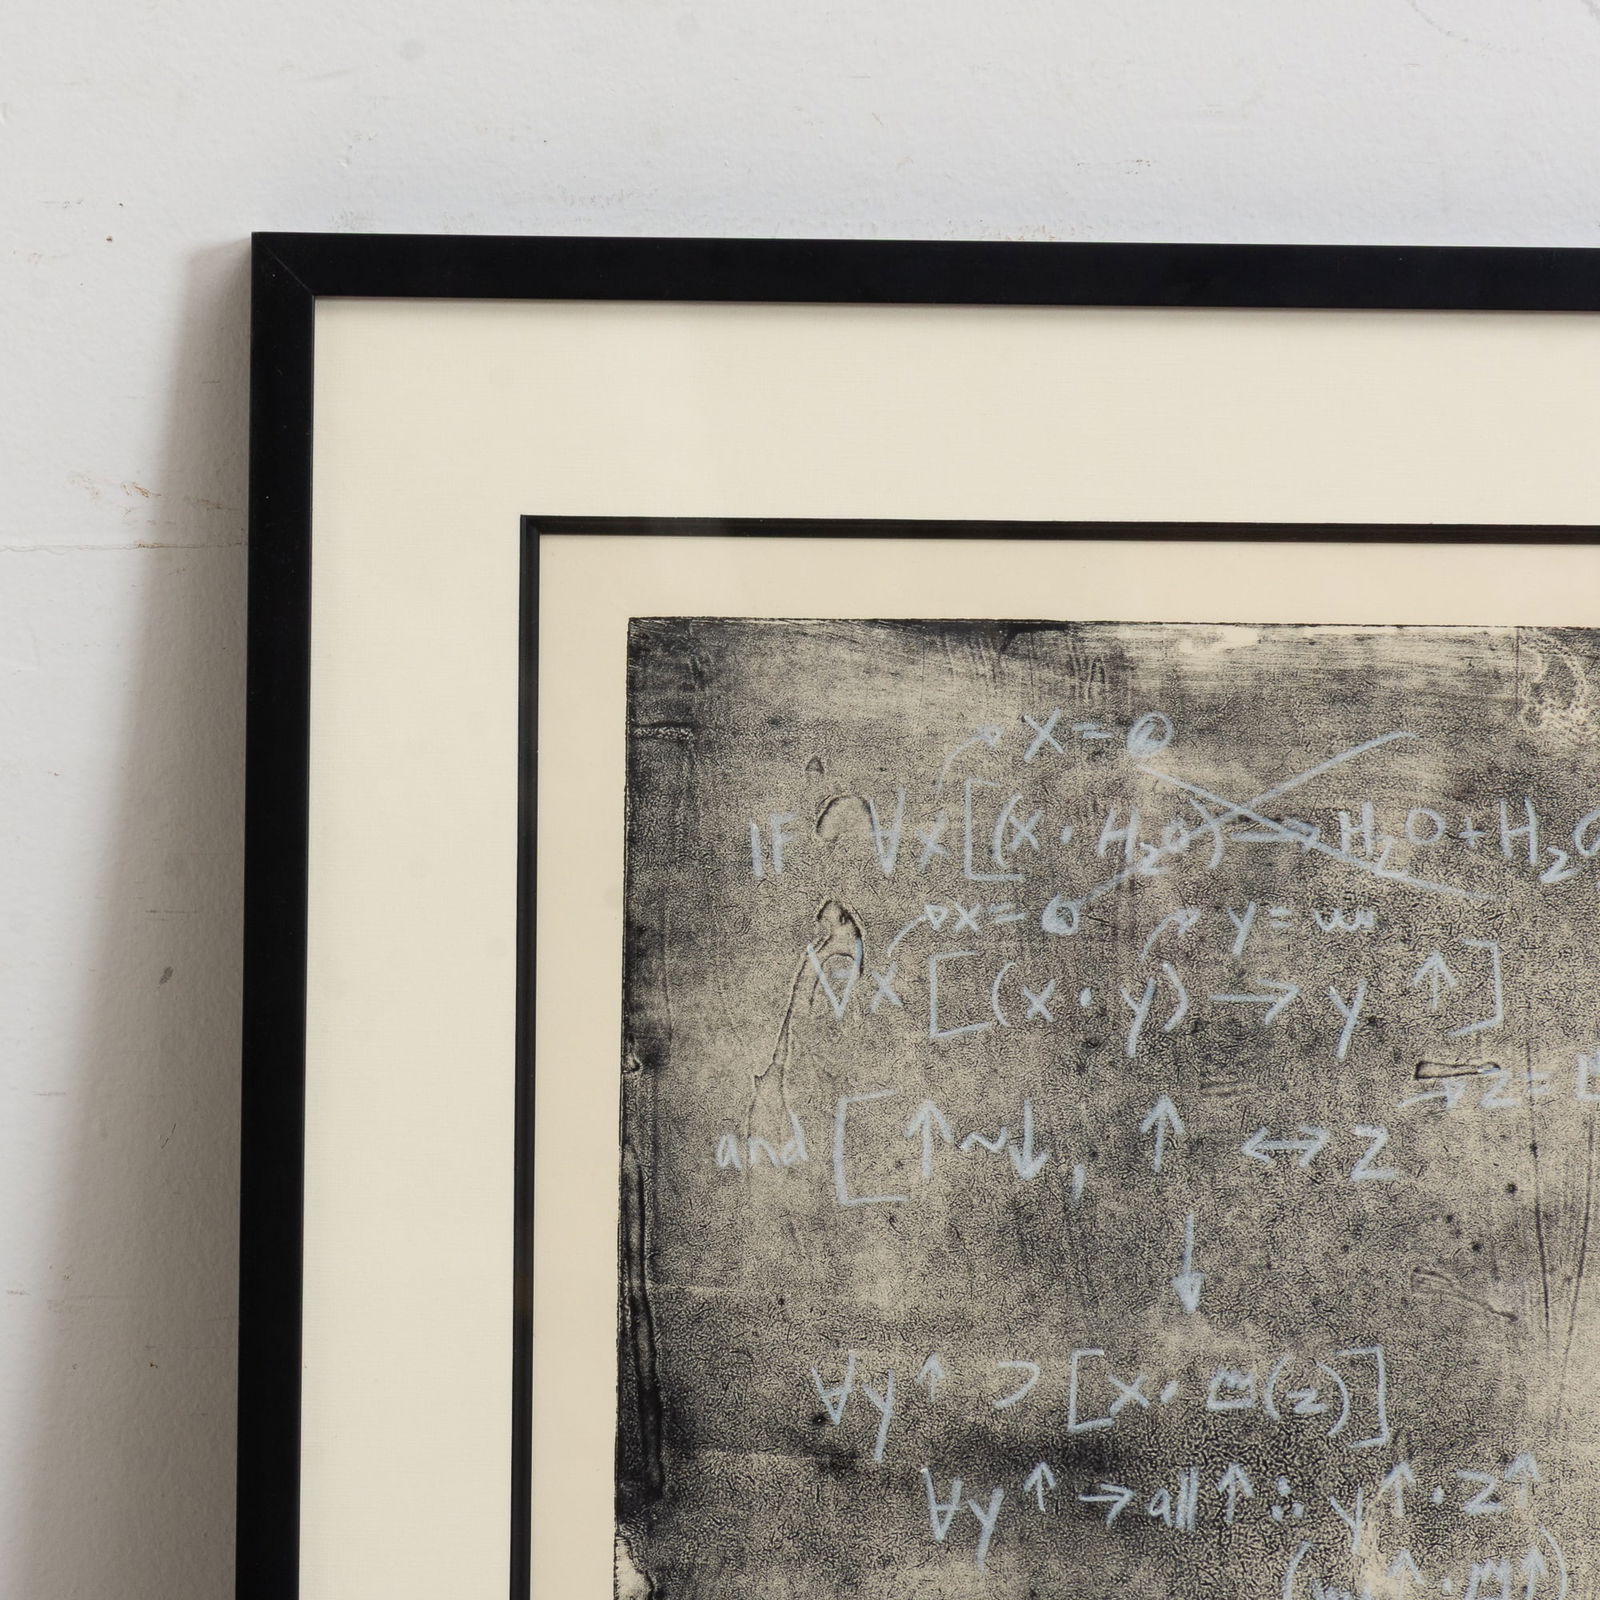 x=
IF ∀x[(x·H₂O)→H₂O+H₂O
x= y=
∀x[(x·y)→y↑]
→z=
and [↑~↓, ↑ ↔ z
↓
∀y↑ ⊃ [x· (z)]
∀y↑→all↑∴ y↑·z↑